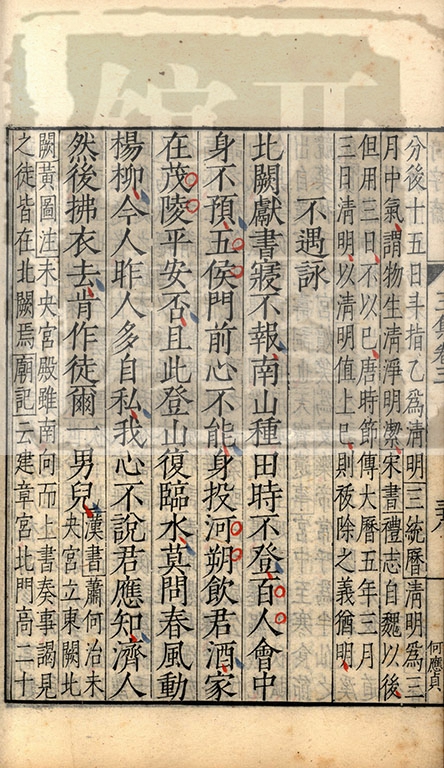 分後十五日斗指乙為清明三統曆清明為三
月中氣謂物生清淨明潔宋書禮志自魏以後
但用三日不以巳唐時節傳大曆五年三月
三日清明以清明值上巳則祓除之義猶明
何應貞
不遇詠
北闕獻書寢不報南山種田時不登百人會中
身不預五侯門前心不能身投河朔飲君酒家
在茂陵平安否且此登山復臨水莫問春風動
楊柳今人昨人多自私我心不說君應知濟人
然後拂衣去肯作徒爾一男兒
漢書蕭何治未
央宮立東闕北
闕黃圖注未央宮殿雖南向而上書奏事謁見
之徒皆在北闕焉廟記云建章宮北門高二十